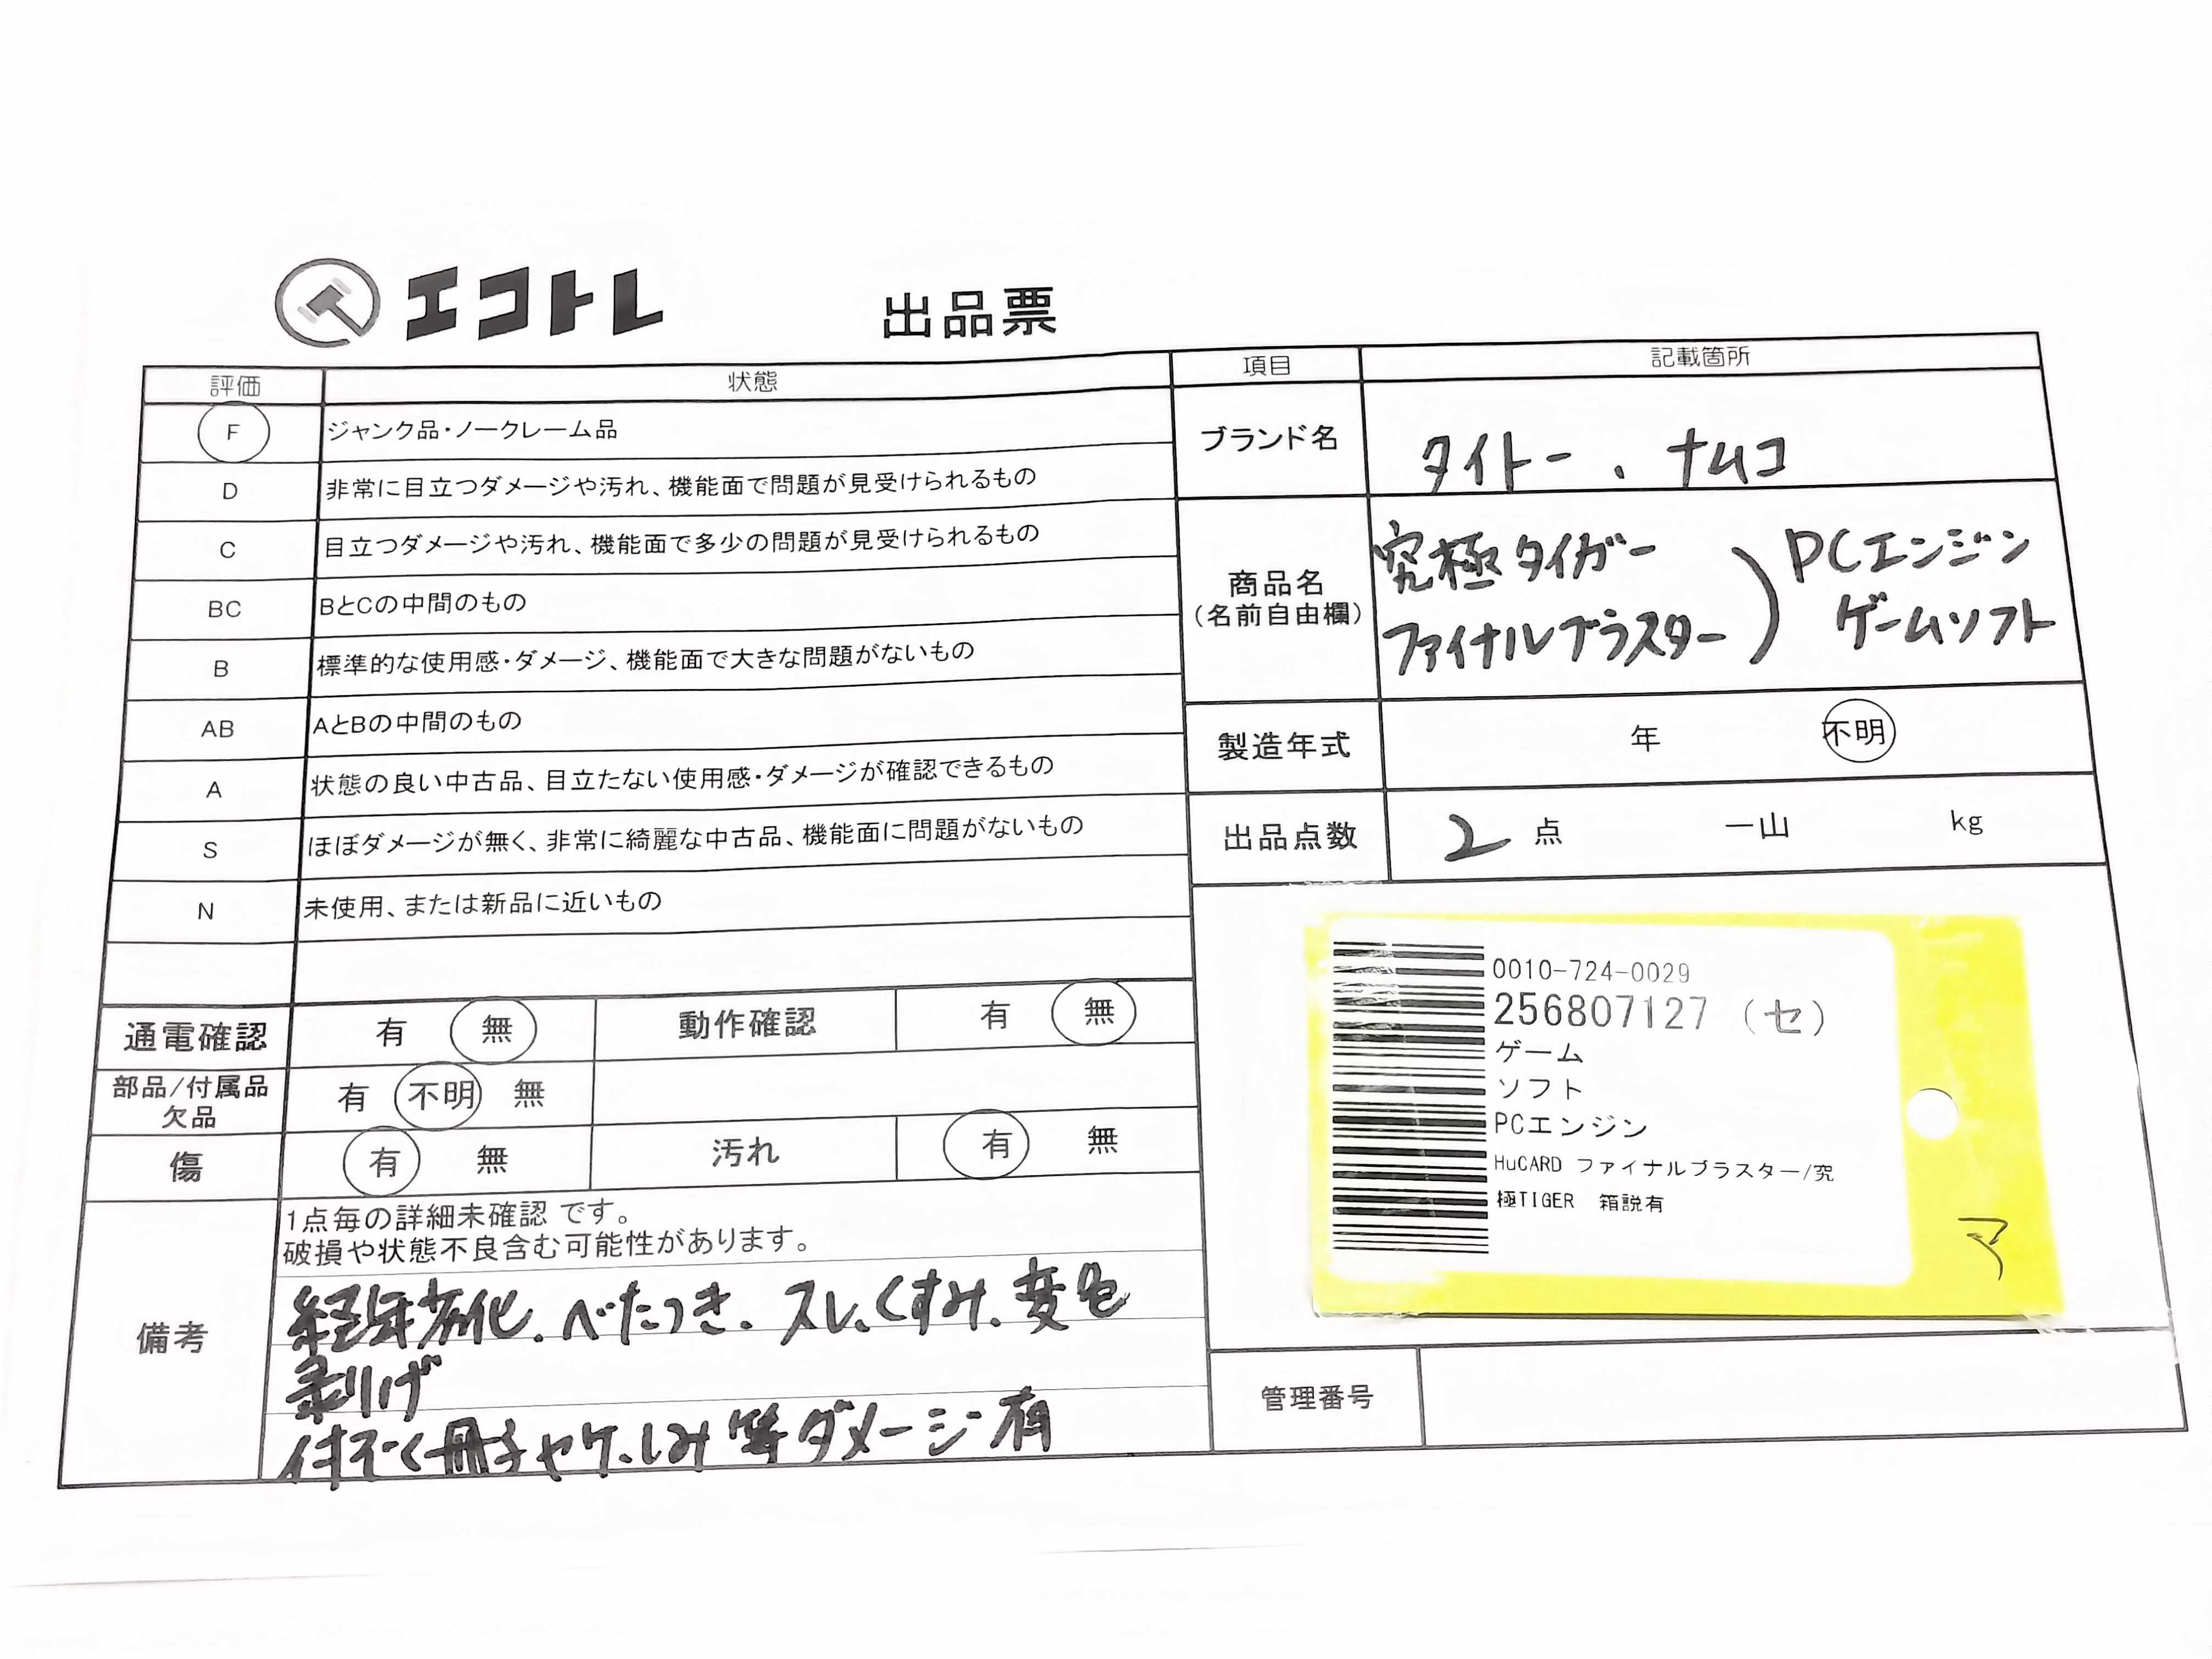 エコトレ
出品票
評価 状態
F ジャンク品・ノークレーム品
D 非常に目立つダメージや汚れ、機能面で問題が見受けられるもの
C 目立つダメージや汚れ、機能面で多少の問題が見受けられるもの
BC BとCの中間のもの
B 標準的な使用感・ダメージ、機能面で大きな問題がないもの
AB AとBの中間のもの
A 状態の良い中古品、目立たない使用感・ダメージが確認できるもの
S ほぼダメージが無く、非常に綺麗な中古品、機能面に問題がないもの
N 未使用、または新品に近いもの
通電確認 有 無 動作確認 有 無
部品/付属品
欠品
有 不明 無
傷 有 無 汚れ 有 無
備考
1点毎の詳細未確認 です。
破損や状態不良含む可能性があります。
経年劣化、べたつき、スレ、くすみ、変色
剥げ
付ぞく冊子ヤケ、しみ等ダメージ有
項目 記載箇所
ブランド名 タイトー、ナムコ
商品名
(名前自由欄)
究極タイガー
ファイナルブラスター
) PCエンジン
ゲームソフト
製造年式 年 不明
出品点数 2 点 一山 kg
0010-724-0029
256807127 (セ)
ゲーム
ソフト
PCエンジン
HuCARD ファイナルブラスター/究
極TIGER 箱説有
マ
管理番号